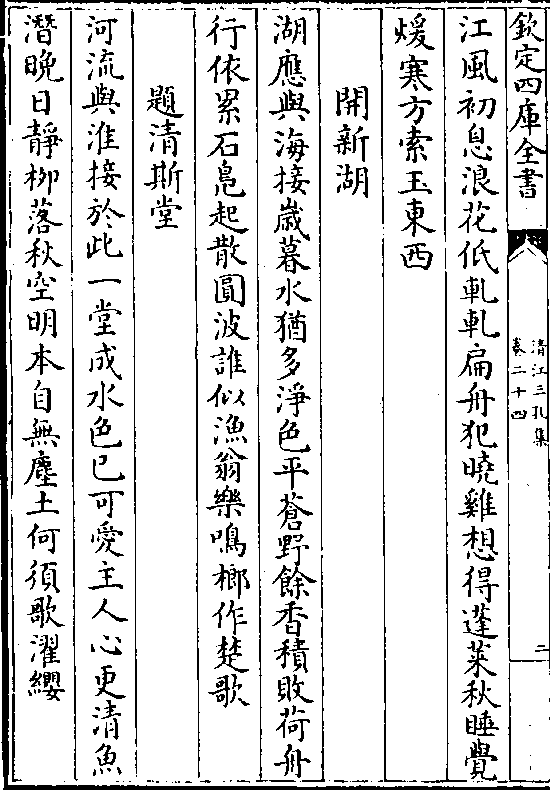 欽定四庫全書
清江三孔集
卷二十四
二
江風初息浪花低軋軋扁舟犯曉雞想得蓬萊秋睡覺
煖寒方索玉東西
開新湖
湖應與海接歲暮水猶多淨色平蒼野餘香積敗荷舟
行依累石鳧起散圓波誰似漁翁樂鳴榔作楚歌
題清斯堂
河流與淮接於此一堂成水色已可愛主人心更清魚
潛晚日靜柳落秋空明本自無塵土何須歌濯纓